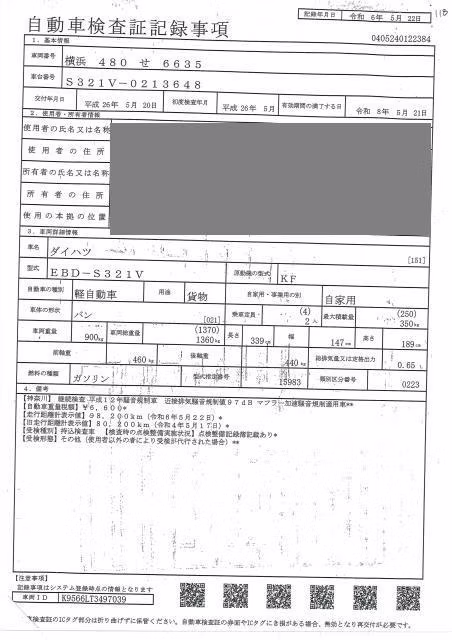 118
自動車検査証記録事項
記録年月日 令和 6年 5月 22日
0405240122384
1. 基本情報
車両番号 横浜 480 せ 6635
車台番号 S321V-0213648
交付年月日 平成 26年 5月 20日 初度検査年月 平成 26年 5月 有効期間の満了する日 令和 8年 5月 21日
2. 使用者・所有者情報
使用者の氏名又は名称
使用者の住所
所有者の氏名又は名称
所有者の住所
使用の本拠の位置
3. 車両詳細情報
車名 ダイハツ [151]
型式 EBD-S321V 原動機の型式 KF
自動車の種別 軽自動車 用途 貨物 自家用・事業用の別 自家用
車体の形状 バン [021] 乗車定員 (4) 2人 最大積載量 (250) 350kg
車両重量 900kg 車両総重量 (1370) 1360kg 長さ 339cm 幅 147cm 高さ 189cm
前軸重 460kg 後軸重 440kg 総排気量又は定格出力 0.65 L
燃料の種類 ガソリン 型式指定番号 15983 類別区分番号 0223
4. 備考
【神奈川】 継続検査 平成12年騒音規制車 近接排気騒音規制値97dB マフラー加速騒音規制適用車**
【自動車重量税額】¥6,600*
【走行距離計表示値】98,200km(令和6年5月22日)*
【旧走行距離計表示値】80,200km(令和4年5月17日)*
【受検種別】持込検査車 【検査時の点検整備実施状況】点検整備記録簿記載あり*
【受検形態】その他(使用者以外の者により受検が代行された場合)**
【注意事項】
記録事項はシステム登録時点の情報となります
車両ID K9566LT3497039
車検査証のICタグ部分は折り曲げずに保管ください。自動車検査証の券面やICタグにき損がある場合、無効となり再交付が必要です。